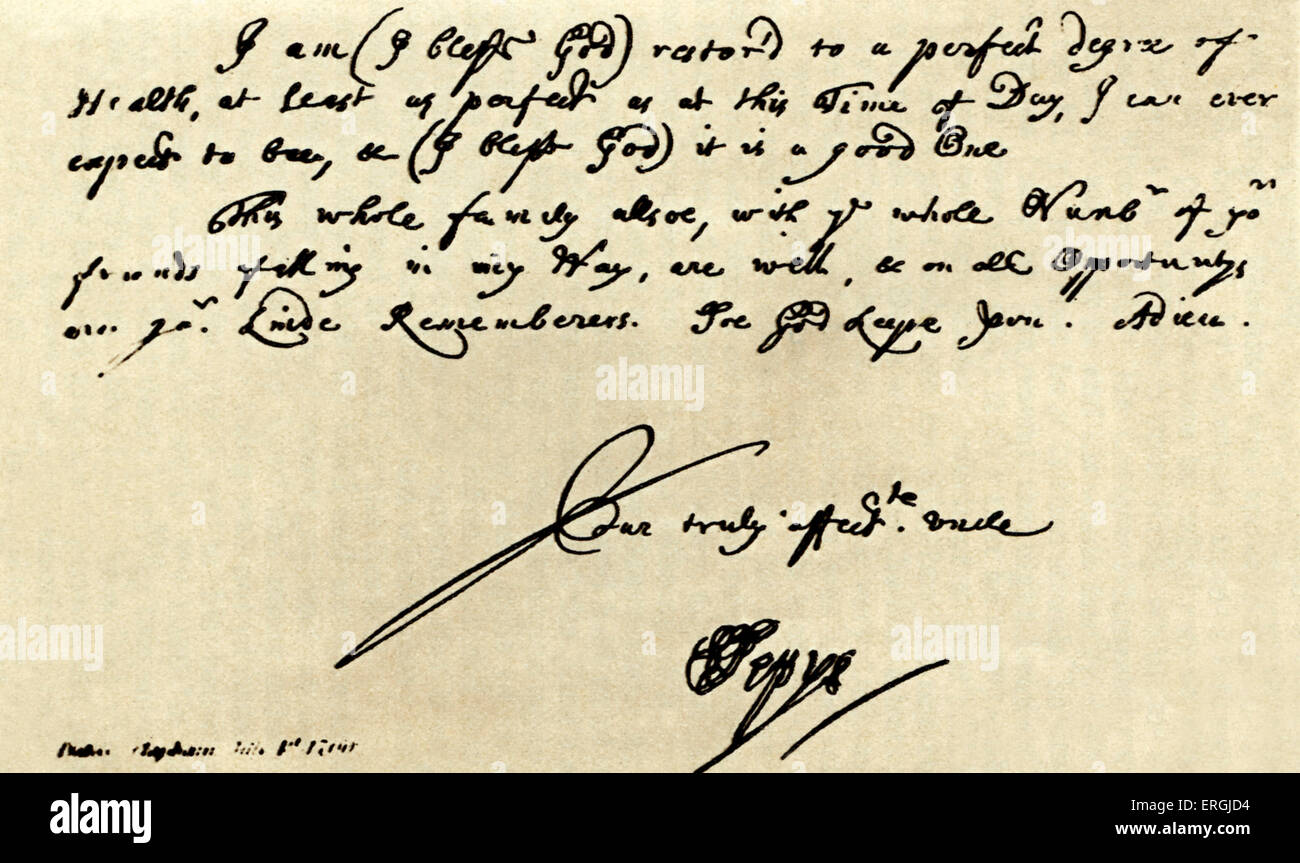 I am (I bless God) restor'd to a perfect degree of
Health, at least as perfect as at this Time of Day, I can ever
expect to bee, & (I bless God) it is a good One
This whole family alsoe, with yᵉ whole Numbʳ of yoʳ
friends falling in my Way, are well, & on all Opportunitys
are yoʳ. Kinde Remembrers. Soe God keepe you. Adieu.
Your truly affectᵗᵉ. uncle
SPepys
Clapham
alamy
alamy
alamy
a
a
a
a
alamy
Image ID: ERGJD4
www.alamy.com